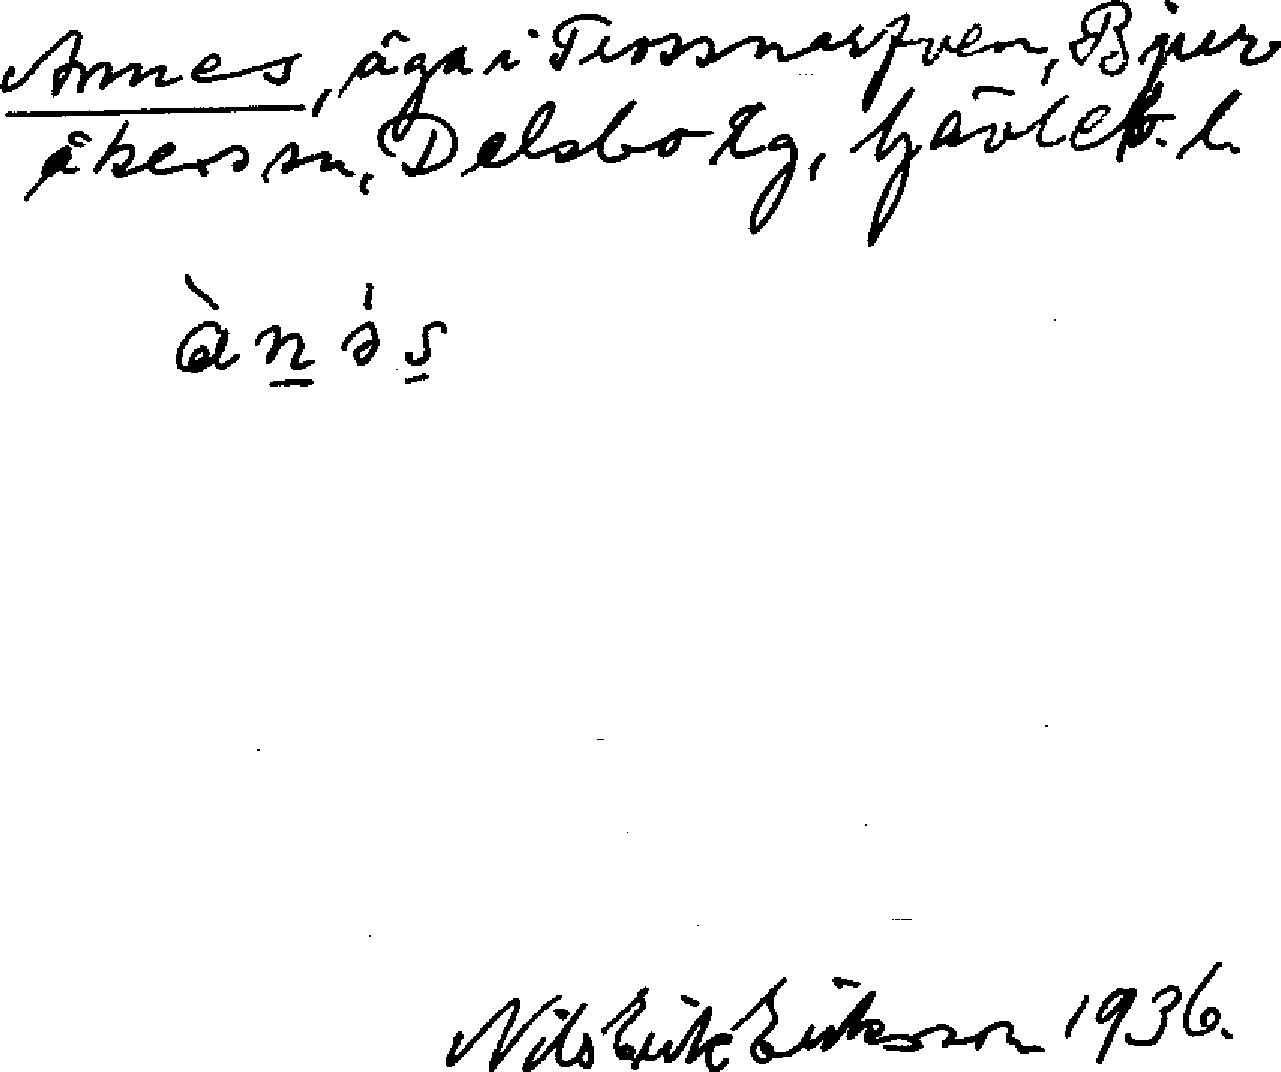 Annes, äga i Tossnarfven, Bjur
åkers sn, Delsbo tg, Gävleb. l.
ànə̍s
Nils Erik Eriksson 1936.